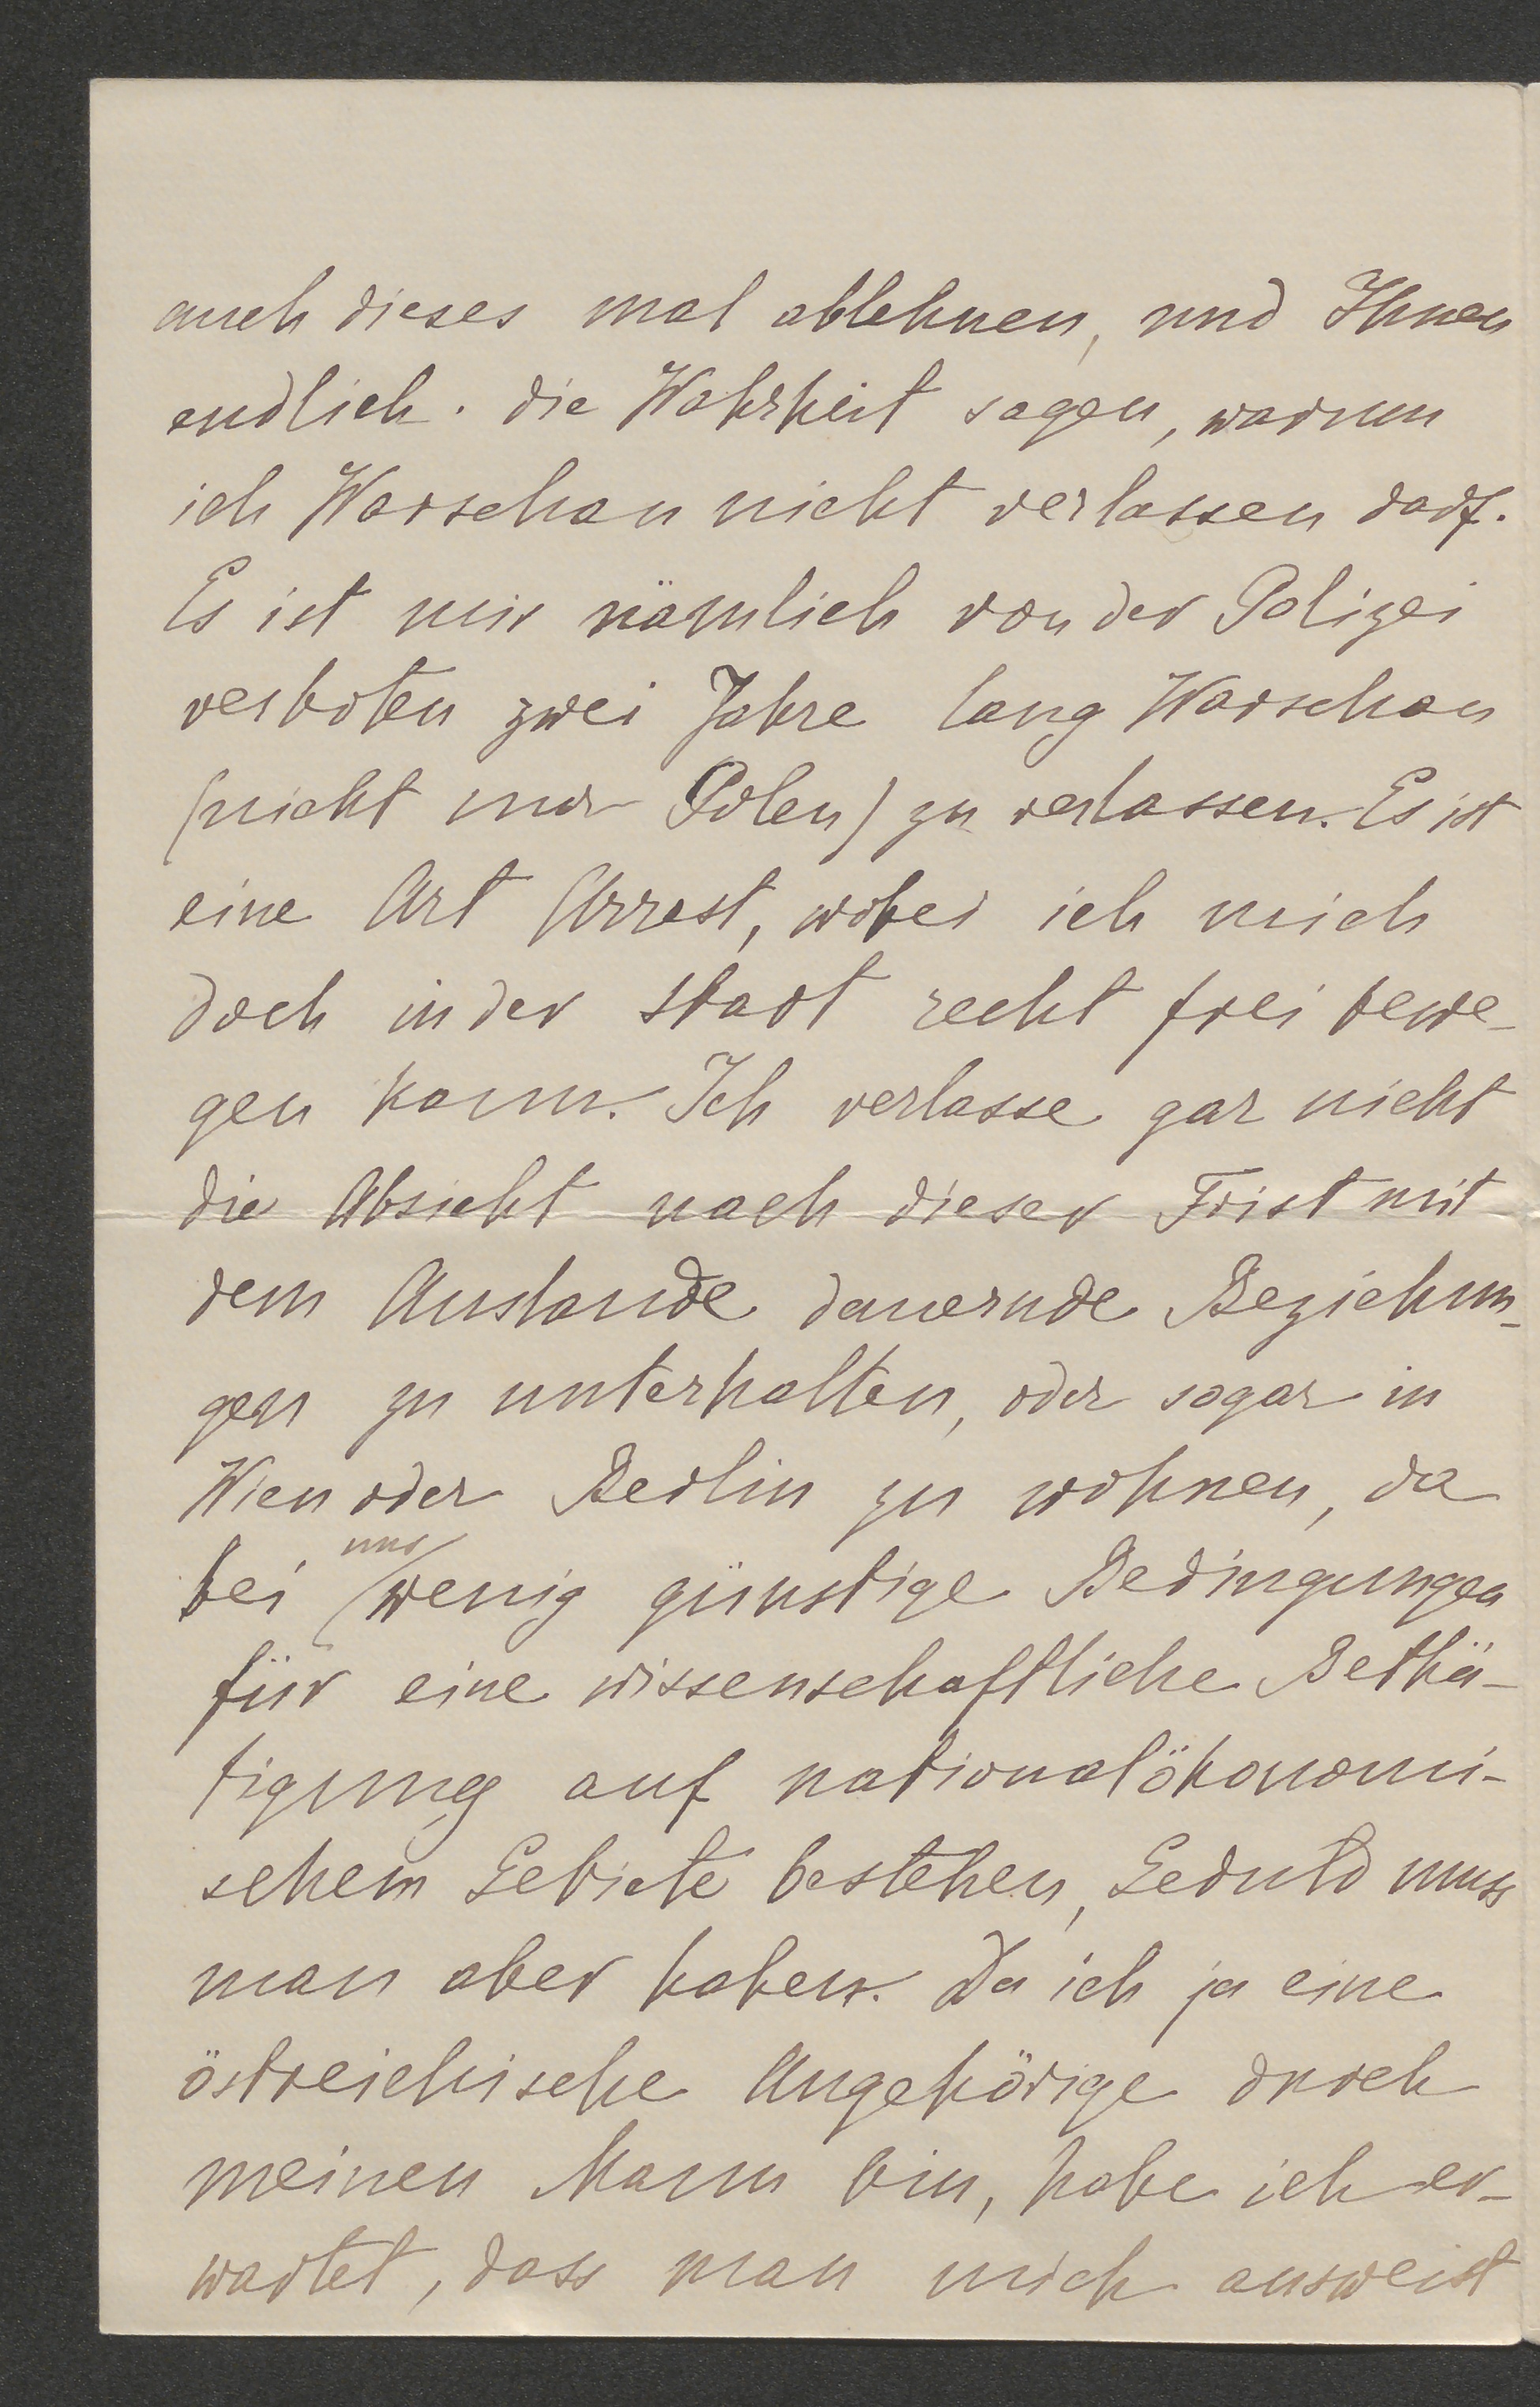 auch dieses mal ablehnen, und Ihnen
endlich. die Wahrheit sagen, warum
ich Warschau nicht verlassen darf.
Es ist mir nämlich von der Polizei
verboten zwei Jahre lang Warschau
(nicht nur Polen) zu verlassen. Es ist
eine Art Arrest, wobei ich mich
doch in der Stadt recht frei bewe-
gen kann. Ich verlasse gar nicht
die Absicht nach dieser Frist mit
dem Auslande dauernde Beziehun-
gen zu unterhalten, oder sogar in
Wien oder Berlin zu wohnen, da
bei uns wenig günstige Bedingungen
für eine wissenschaftliche Bethä-
tigung auf nationalökonomi-
schem Gebiete bestehen, Geduld muss
man aber haben. Da ich ja eine
östreichische Angehörige durch
meinen Mann bin, habe ich er-
wartet, dass man mich ausweist